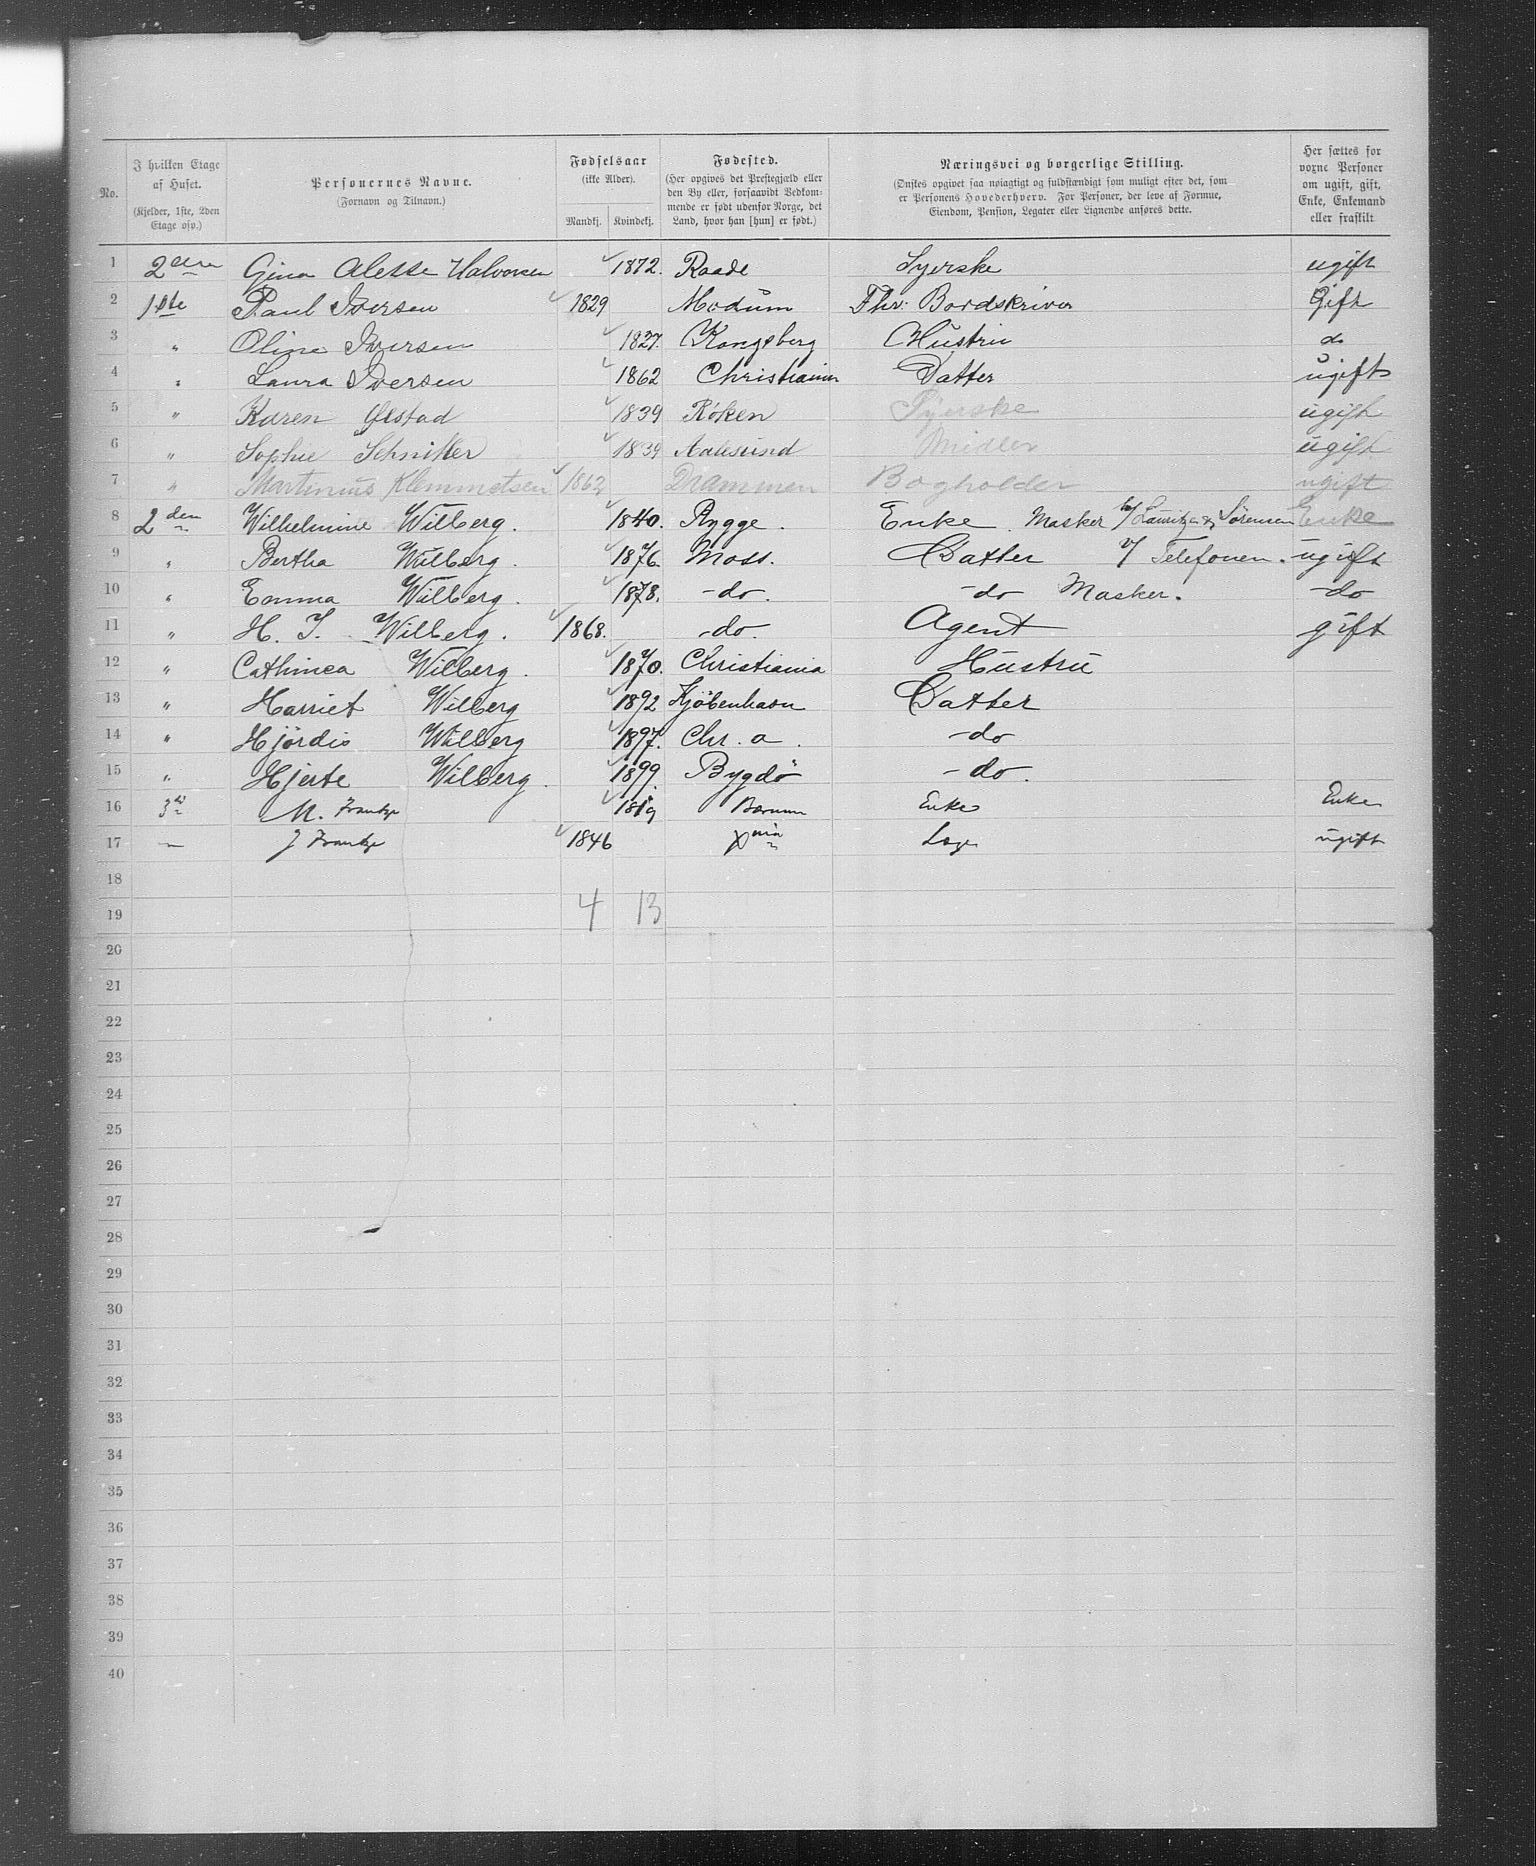 No. | I hvilken Etage af Huset. (Kjelder, 1ste, 2den Etage osv.) | Personernes Navne. (Fornavn og Tilnavn.) | Fødselsaar (ikke Alder). Mandkj. | Kvindekj. | Fødested. (Her opgives det Prestegjæld eller den By eller, forsaavidt Vedkommende er født udenfor Norge, det Land, hvor han [hun] er født.) | Næringsvei og borgerlige Stilling. (Ønskes opgivet saa nøiagtigt og fuldstændigt som muligt efter det, som er Personens Hovederhverv. For Personer, der leve af Formue, Eiendom, Pension, Legater eller Lignende anføres dette.) | Her sættes for voxne Personer om ugift, gift, Enke, Enkemand eller fraskilt
1 | 2den | Gina Alette Halvorsen | 1872. | Raade | Syerske | ugift
2 | 1ste | Paul Iversen | 1829 | Modum | Fhv. Bordskriver | Gift
3 | " | Oline Iversen | 1827. | Kongsberg | Hustru | do
4 | " | Laura Iversen | 1862 | Christiania | Datter | ugift
5 | " | Karen Ølstad | 1839 | Røken | Syerske | ugift
6 | " | Sophie Schnitler | 1839 | Aalesund | Midler | ugift
7 | " | Martinius Klemmetsen | 1862 | Drammen | Bogholder | ugift
8 | 2den | Wilhelmine Wilberg. | 1840. | Rygge. | Enke. Masker Lauritz Sørensen | Enke
9 | " | Bertha Wilberg. | 1876. | Moss. | Datter v/ Telefonen. | ugift
10 | " | Emma Wilberg. | 1878. | -do. | -do Masker. | -do
11 | " | H. J. Wilberg. | 1868. | -do. | Agent | gift
12 | " | Cathinca Wilberg. | 1870. | Christiania | Hustru
13 | " | Harriet Wilberg | 1892 | Kjöbenhavn | Datter
14 | " | Hjørdis Wilberg | 1897. | Chr. a. | -do
15 | " | Hjerte Wilberg. | 1899. | Bygdö | -do.
16 | 3die | M. Frantze | 1819 | Bærum | Enke | Enke
17 | — | J Frantze | 1846 | Xnia | Læge | ugift
18
19 | 4 | 13
20
21
22
23
24
25
26
27
28
29
30
31
32
33
34
35
36
37
38
39
40